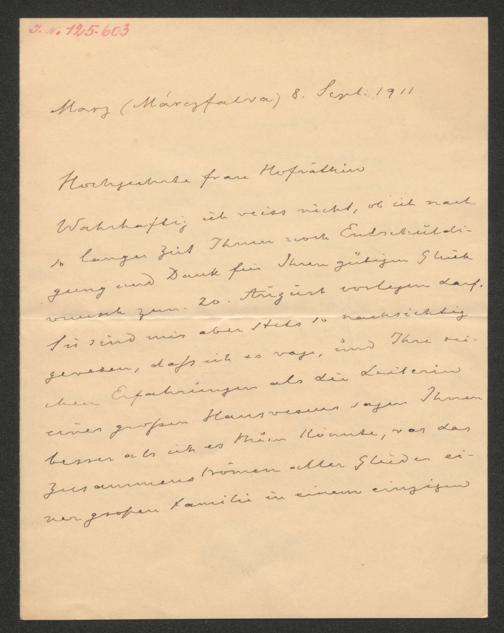 J. N. 125.603
Marz (Márczfalva) 8. Sept. 1911
Hochgeehrte Frau Hofräthin
Wahrhaftig ich weiss nicht, ob ich nach
so langer Zeit Ihnen noch Entschuldi-
gung und Dank für Ihren gütigen Glück
wunsch zum 20. August vorlegen darf.
Sie sind mir aber stets so nachsichtig
gewesen, daß ich es wage, und Ihre rei-
chen Erfahrungen als die Leiterin
eines großen Hauswesens sagen Ihnen
besser als ich es könnte, was das
Zusammenströmen aller Glieder ei-
ner großen Familie in einem einzigen